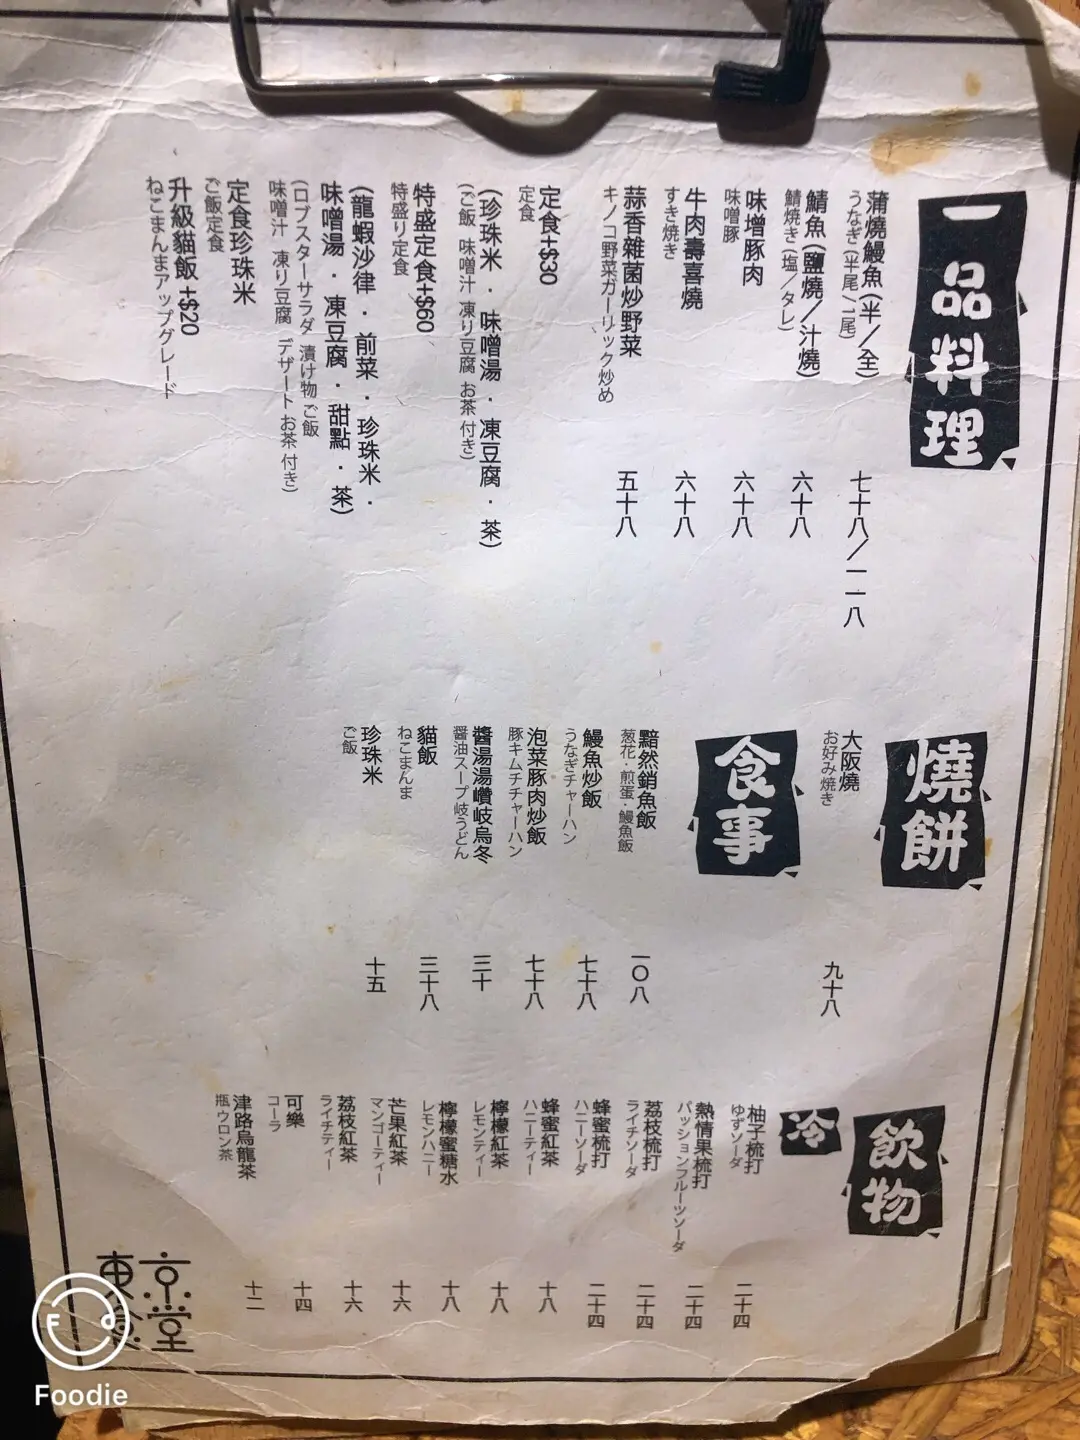 一品料理
蒲燒鰻魚(半／全)
うなぎ(半尾／1尾)
七十八／一一八
鯖魚(鹽燒／汁燒)
鯖焼き(塩／タレ)
六十八
味增豚肉
味噌豚
六十八
牛肉壽喜燒
すき焼き
六十八
蒜香雜菌炒野菜
キノコ野菜ガーリック炒め
五十八
定食+$30
定食
(珍珠米．味噌湯．凍豆腐．茶)
(ご飯 味噌汁 凍り豆腐 お茶 付き)
特盛定食+$60
特盛り定食
(龍蝦沙律．前菜．珍珠米．
味噌湯．凍豆腐．甜點．茶)
(ロブスターサラダ 漬け物 ご飯
味噌汁 凍り豆腐 デザート お茶 付き)
定食珍珠米
ご飯定食
升級貓飯+$20
ねこまんまアップグレード
燒餅
大阪燒
お好み焼き
九十八
食事
黯然銷魚飯
葱花・煎蛋・鰻魚飯
一〇八
鰻魚炒飯
うなぎチャーハン
七十八
泡菜豚肉炒飯
豚キムチチャーハン
七十八
醬湯湯讚岐烏冬
醤油スープ岐うどん
三十
貓飯
ねこまんま
三十八
珍珠米
ご飯
十五
飲物
冷
柚子梳打
ゆずソーダ
二十四
熱情果梳打
パッションフルーツソーダ
二十四
荔枝梳打
ライチソーダ
二十四
蜂蜜梳打
ハニーソーダ
二十四
蜂蜜紅茶
ハニーティー
十八
檸檬紅茶
レモンティー
十八
檸檬蜜糖水
レモンハニー
十八
芒果紅茶
マンゴーティー
十六
荔枝紅茶
ライチティー
十六
可樂
コーラ
十四
津路烏龍茶
瓶ウロン茶
十二
東京
食堂
Foodie